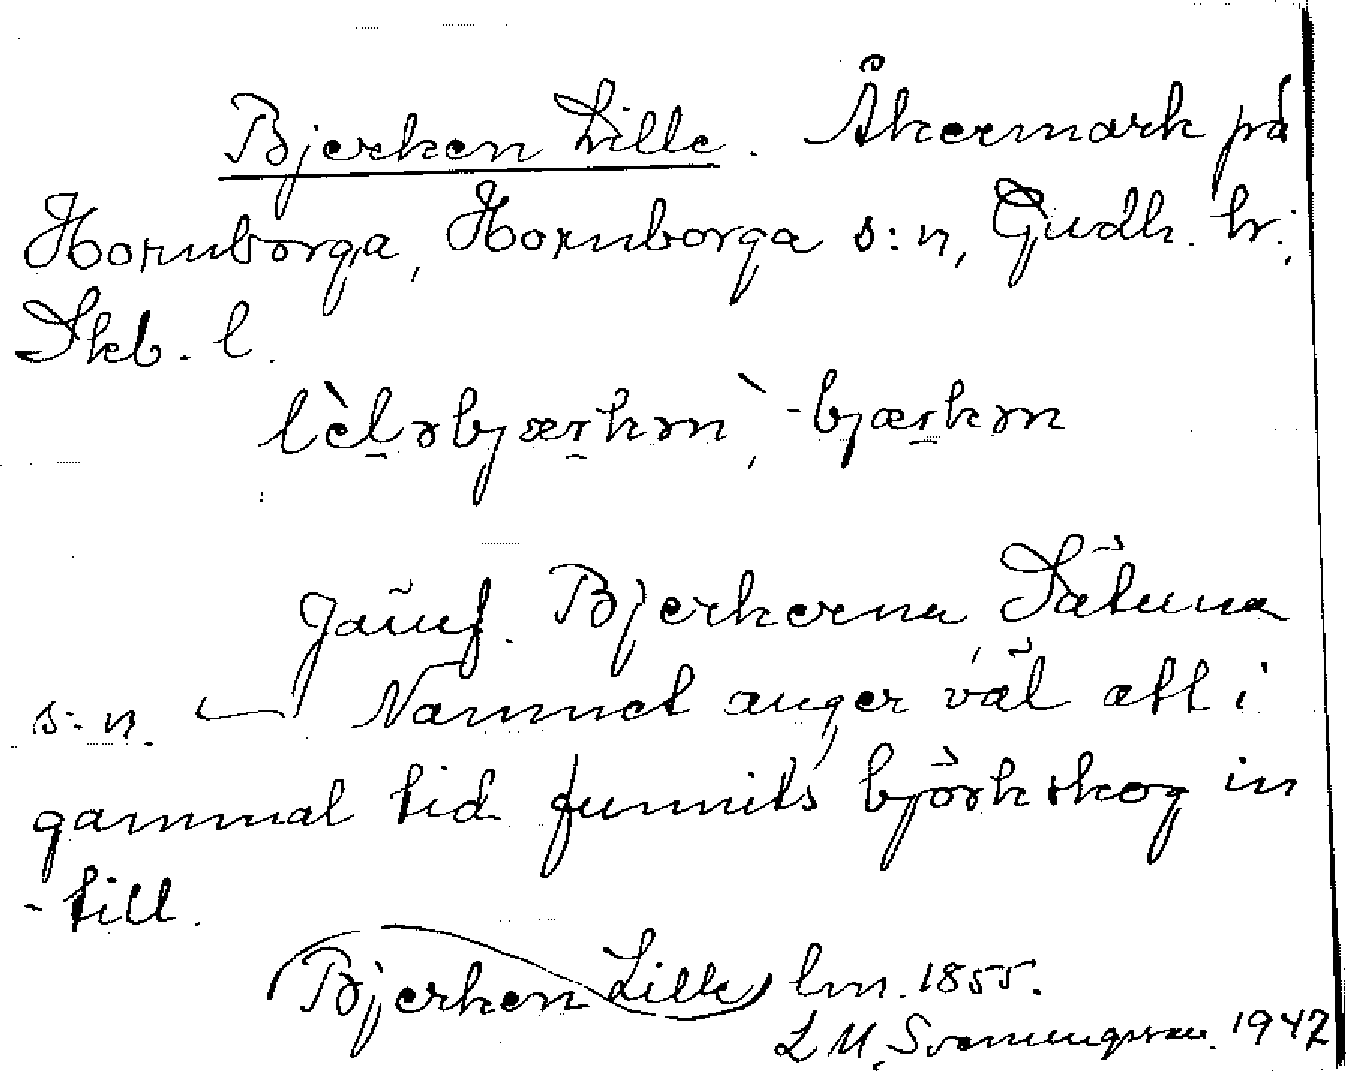 Bjerken Lille. Åkermark på
Hornborga, Hornborga s:n, Gudh. hr;
Skb. l.
lèl̠əbjær̠kən`, -bjær̠kən
Jämf. Bjerkerna, Sätuna
s:n. — Namnet anger väl att i
gammal tid funnits björkskog in
-till.
Bjerken Lille lm. 1855.
L M. Svenungsson. 1942